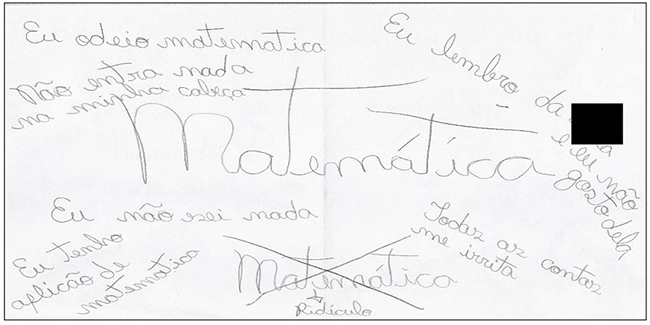 Eu odeio matematica
Não entra nada
na minha cabeça
Eu lembro da
e eu não
gosto dela
Matemática
Eu não sei nada
Eu tenho
aplicão de
matematica
Todas as contas
me irrita
Matemática
Ridiculo